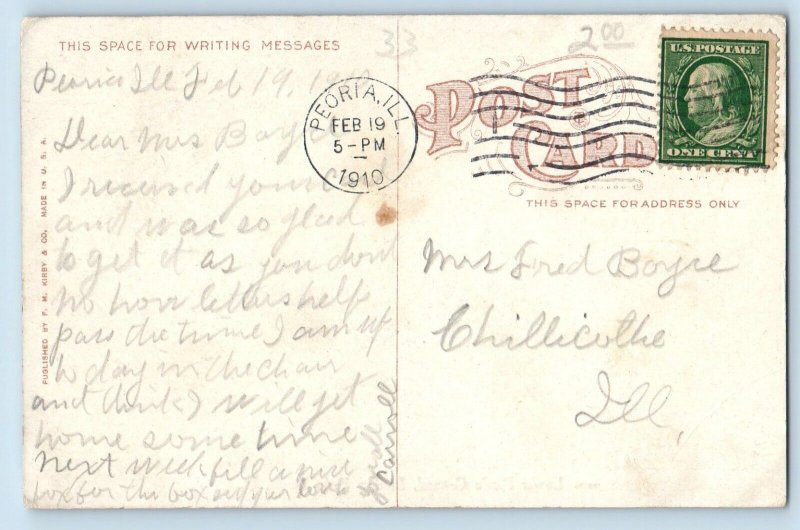 THIS SPACE FOR WRITING MESSAGES
33
2 00
Peoria Ill Feb 19, 19
Dear Mrs Boyce
I received your card
and was so glad
to get it as you dont
no how letters help
pass the time I am up
to day in the chair
and think I will get
home some time
next week
for the box
Carroll
PUBLISHED BY F. M. KIRBY & CO. MADE IN U. S. A.
PEORIA, ILL.
FEB 19
5-PM
1910
POST CARD
U.S. POSTAGE
ONE CENT
THIS SPACE FOR ADDRESS ONLY
Mrs Fred Boyce
Chillicothe
Ill.